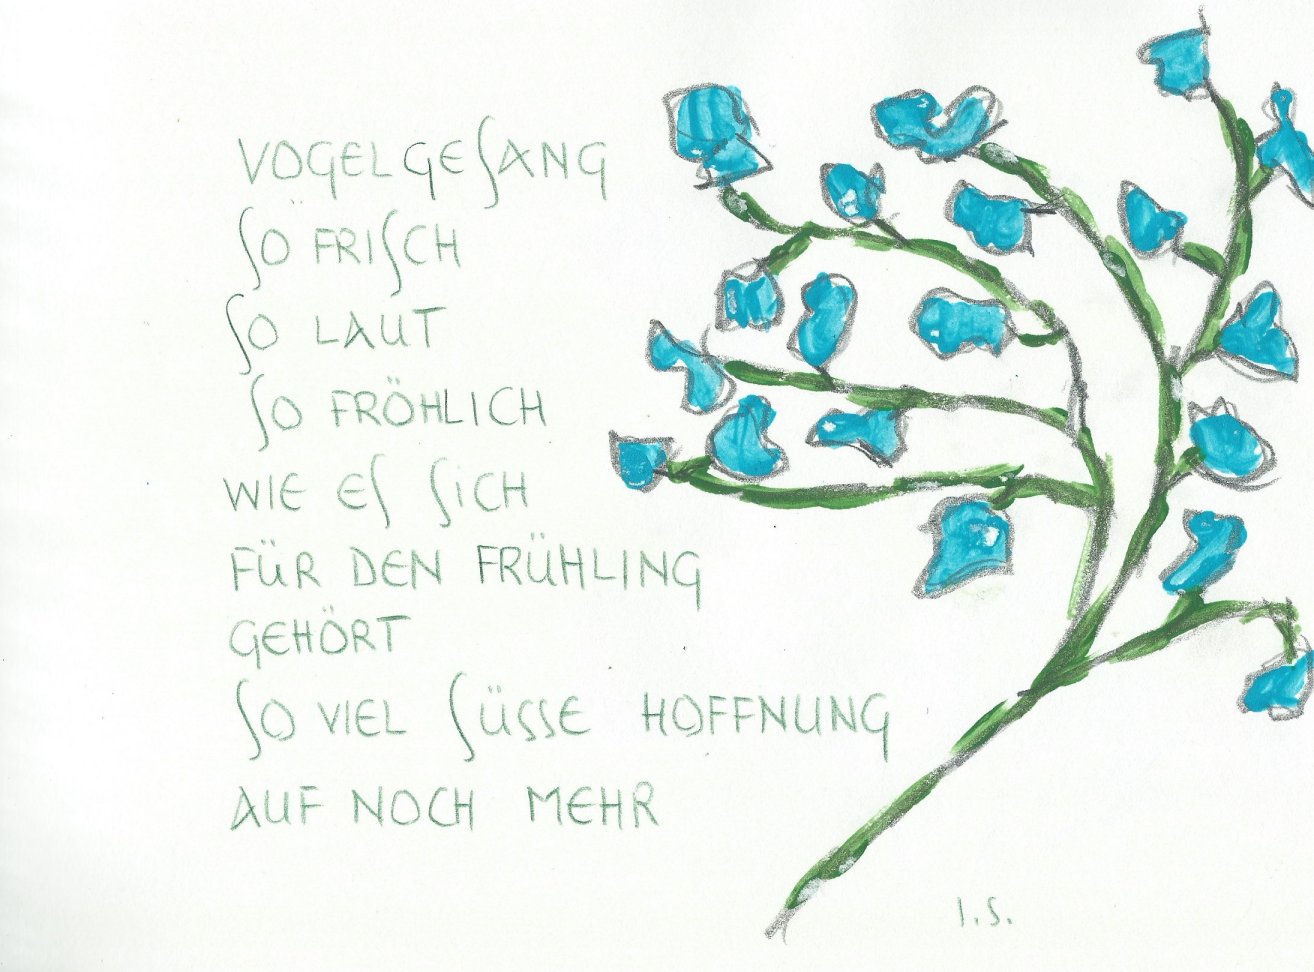 VOGELGESANG
SO FRISCH
SO LAUT
SO FRÖHLICH
WIE ES SICH
FÜR DEN FRÜHLING
GEHÖRT
SO VIEL SÜSSE HOFFNUNG
AUF NOCH MEHR
I.S.